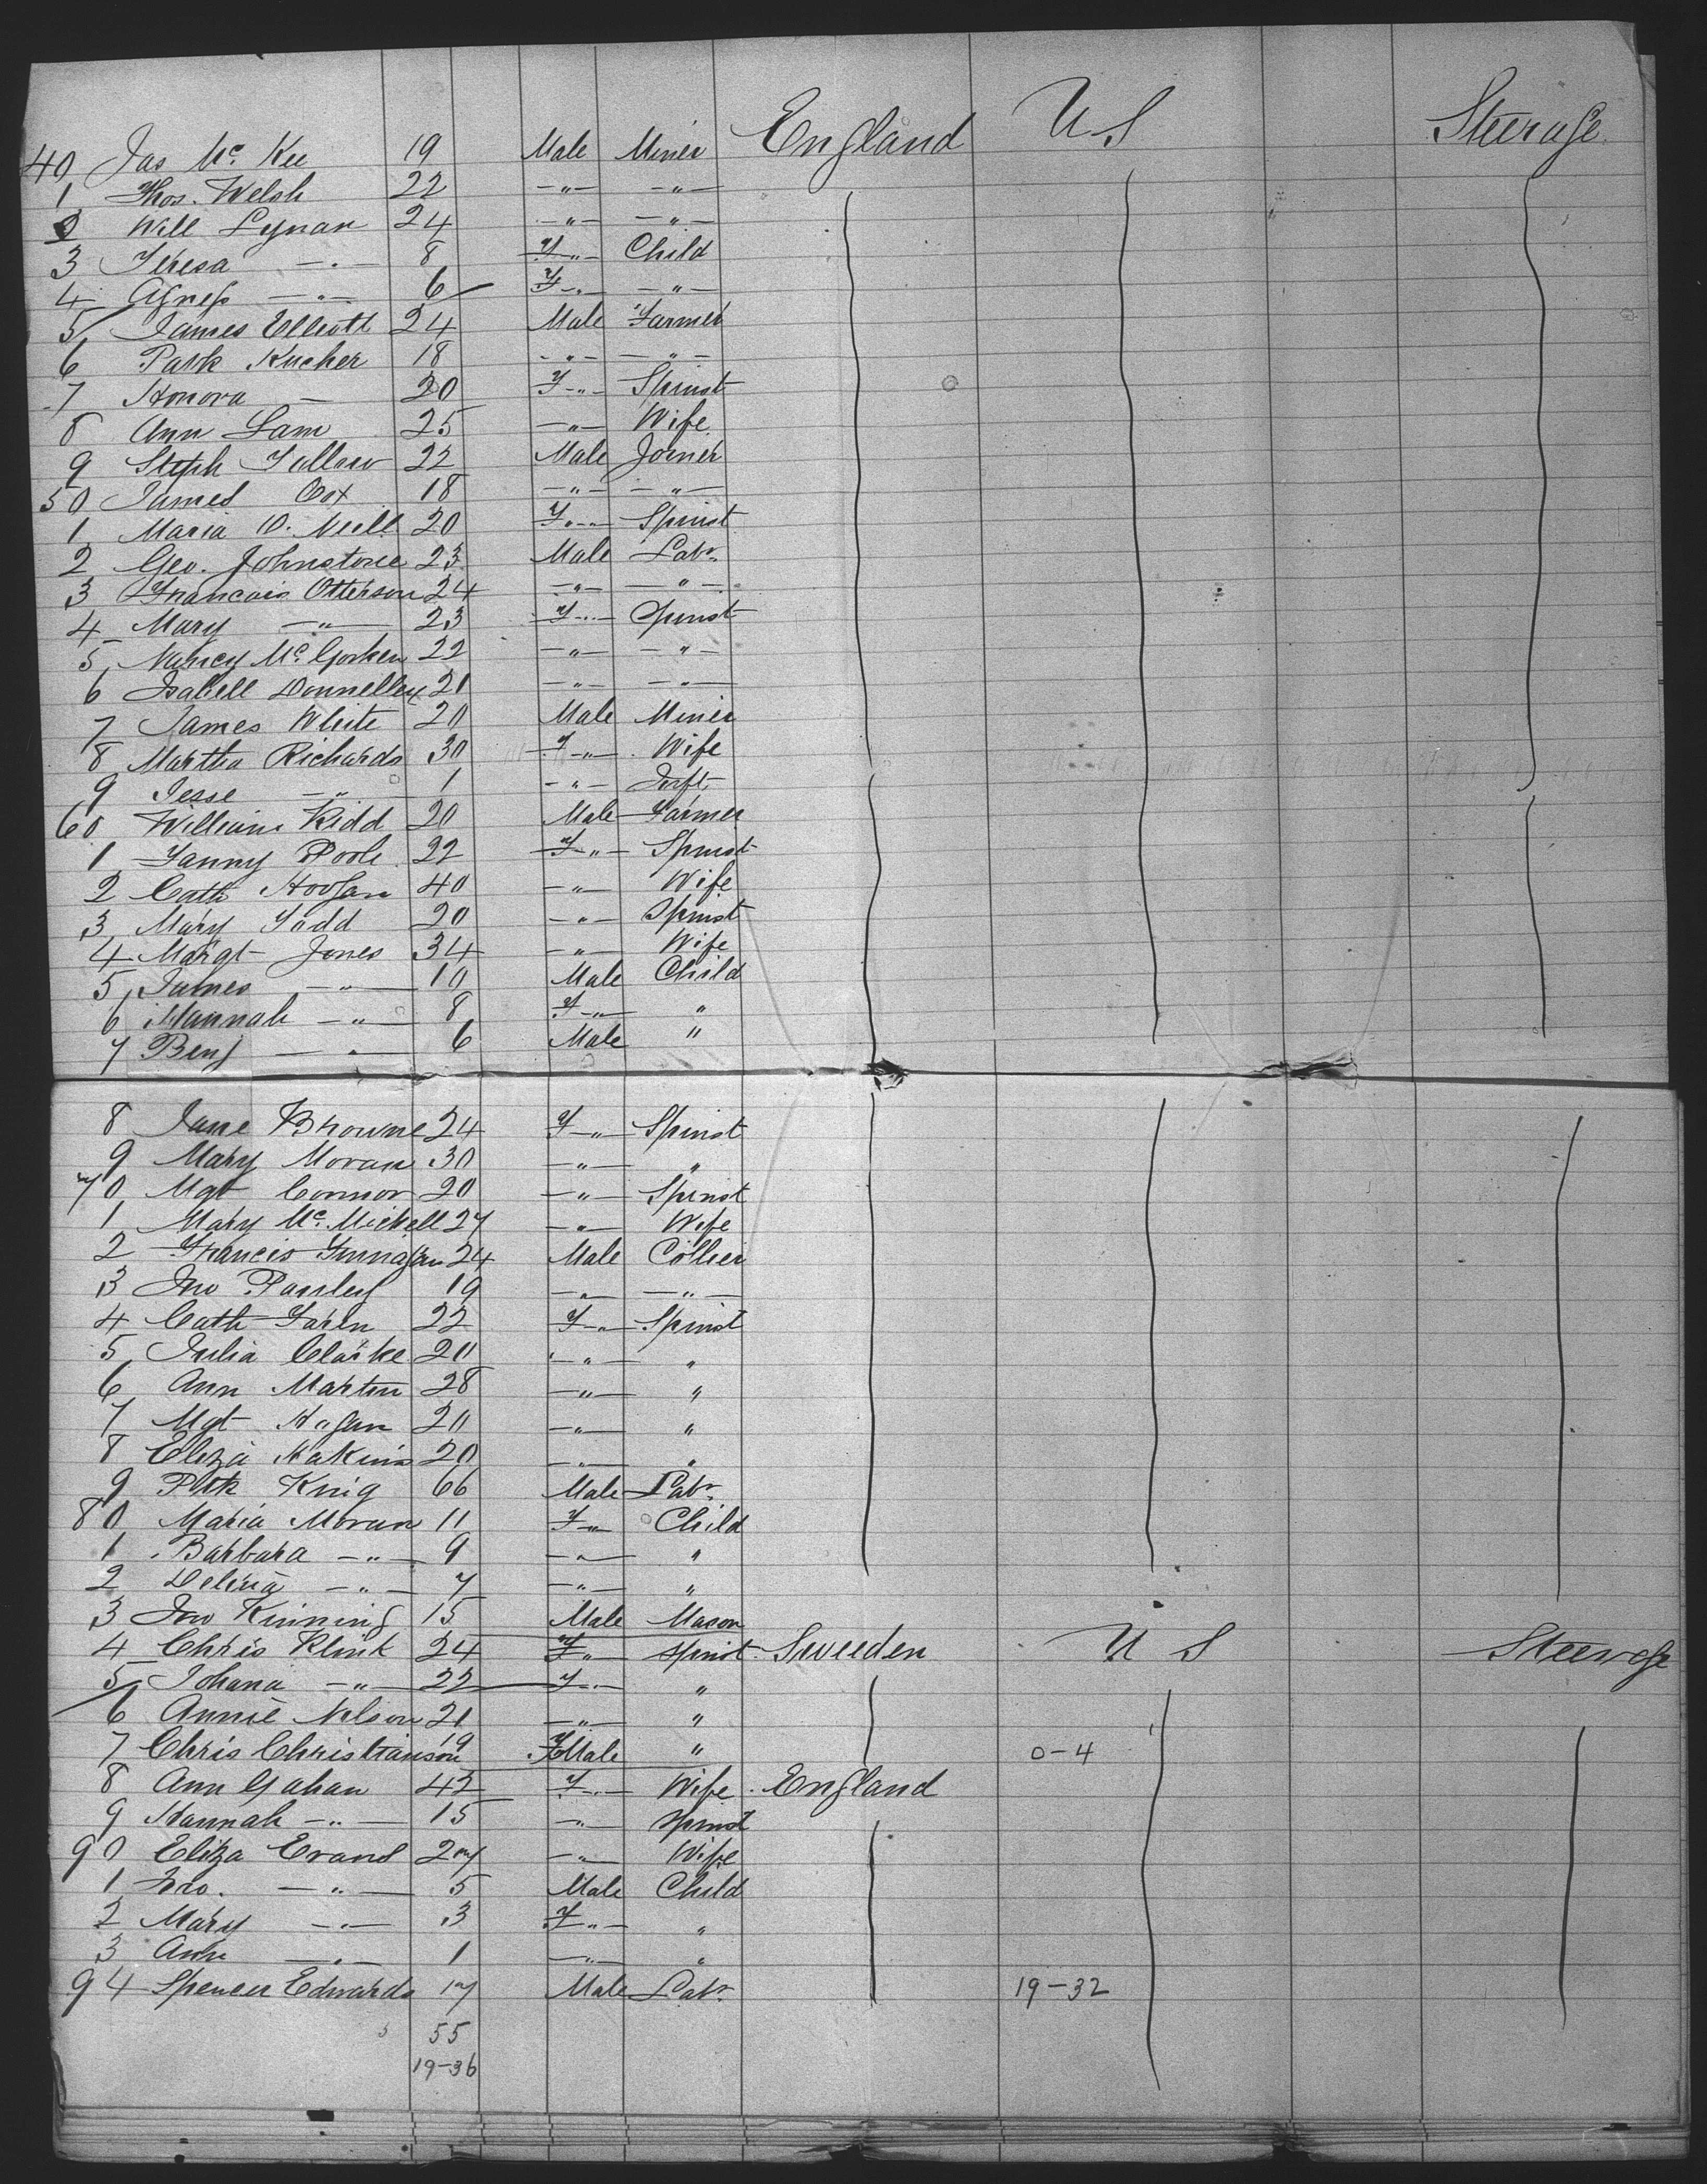 40 Jas Mc Kee 19 Male Miner England U S Steerage
1 Thos. Welsh 22 -"- -"-
2 Will Lynan 24 -"- -"-
3 Teresa -"- 8 F-"- Child
4 Agness -"- 6 F-"- -"-
5 James Elliott 24 Male Farmer
6 Patk 18 -"- -"-
7 Honora - 20 F-"- Spinst
8 Ann Lam 25 -"- Wife
9 Steph 22 Male Joiner
50 James Cox 18 -"- -"-
1 Maria O. Neill 20 F-"- Spinst
2 Geo. Johnstone 23 Male Labr
3 Francois Otterson 24 -"- -"-
4 Mary -"- 23 F-"- Spinst
5 Nancy Mc 22 -"- -"-
6 Isabell Donnelley 21 -"- -"-
7 James White 20 Male Miner
8 Martha Richards 30 F-"- Wife
9 Jesse -"- 1 -"- Inft
60 William Kidd 20 Male Farmer
1 Fanny Poole 22 F-"- Spinst
2 Cath Hoogan 40 -"- Wife
3 Mary Todd 20 -"- Spinst
4 Margt Jones 34 -"- Wife
5 James -"- 10 Male Child
6 Hannah -"- 8 F-"- "
7 Benj -"- 6 Male "
8 Jane Browne 24 F-"- Spinst
9 Mary Moran 30 -"- "
70 Mgt Connor 20 -"- Spinst
1 Mary Mc Mickell 27 -"- Wife
2 Francis Finnigan 24 Male Collier
3 Jno Parsley 19 -"- -"-
4 Cath 22 F-"- Spinst
5 Julia Clarke 20 -"- "
6 Ann Martin 28 -"- "
7 Mgt Hagan 20 -"- "
8 Eliza Makins 20 -"- "
9 Patk King 66 Male Labr
80 Maria Moran 11 F-"- Child
1 Barbara -"- 9 -"- "
2 Delina -"- 7 -"- "
3 Jno Kinning 15 Male Mason
4 Chris Klink 24 F-"- Spinst Sweeden U S Steerage
5 Johana -"- 22 F-"- "
6 Annie Nelson 21 -"- "
7 Chris Christianson 19 FMale " 0-4
8 Ann Gahan 42 F-"- Wife England
9 Hannah -"- 15 -"- Spinst
90 Eliza Evans 27 -"- Wife
1 Jno. -"- 5 Male Child
2 Mary -"- 3 F-"- "
3 Ann -"- 1 -"- "
94 Spencer Edwards 17 Male Labr 19-32
55
19-36